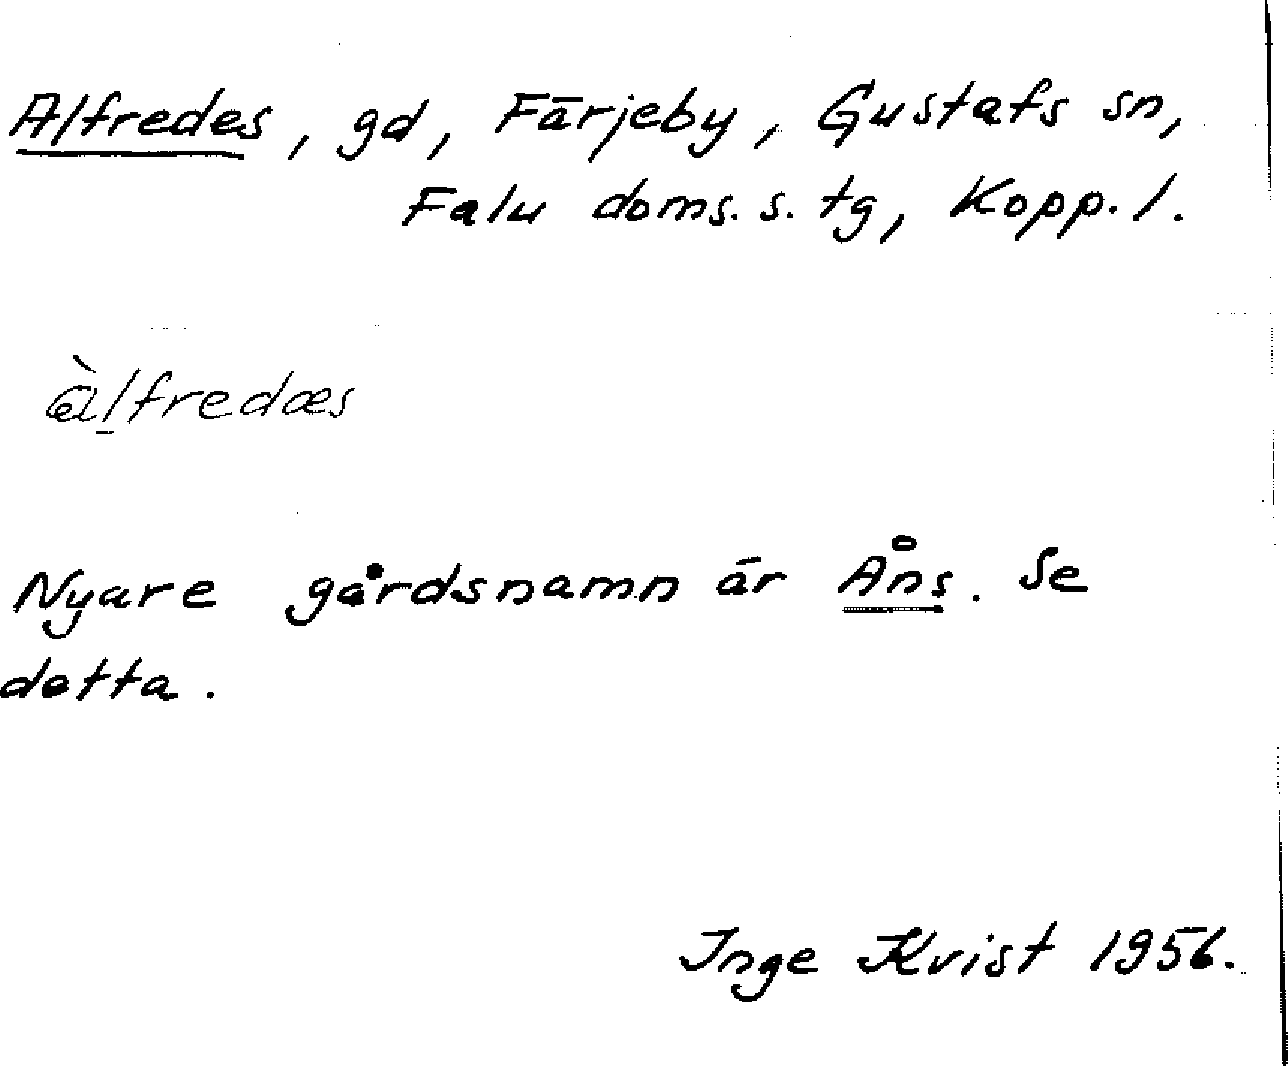 Alfredes, gd, Färjeby, Gustafs sn,
Falu doms. s. tg, Kopp. l.
àl̲fredæs
Nyare gårdsnamn är Åns. Se
detta.
Inge Kvist 1956.